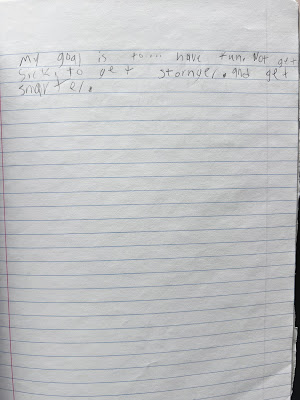 My goal is have fun. Not get
sick, to get stornger. and get
snarter.